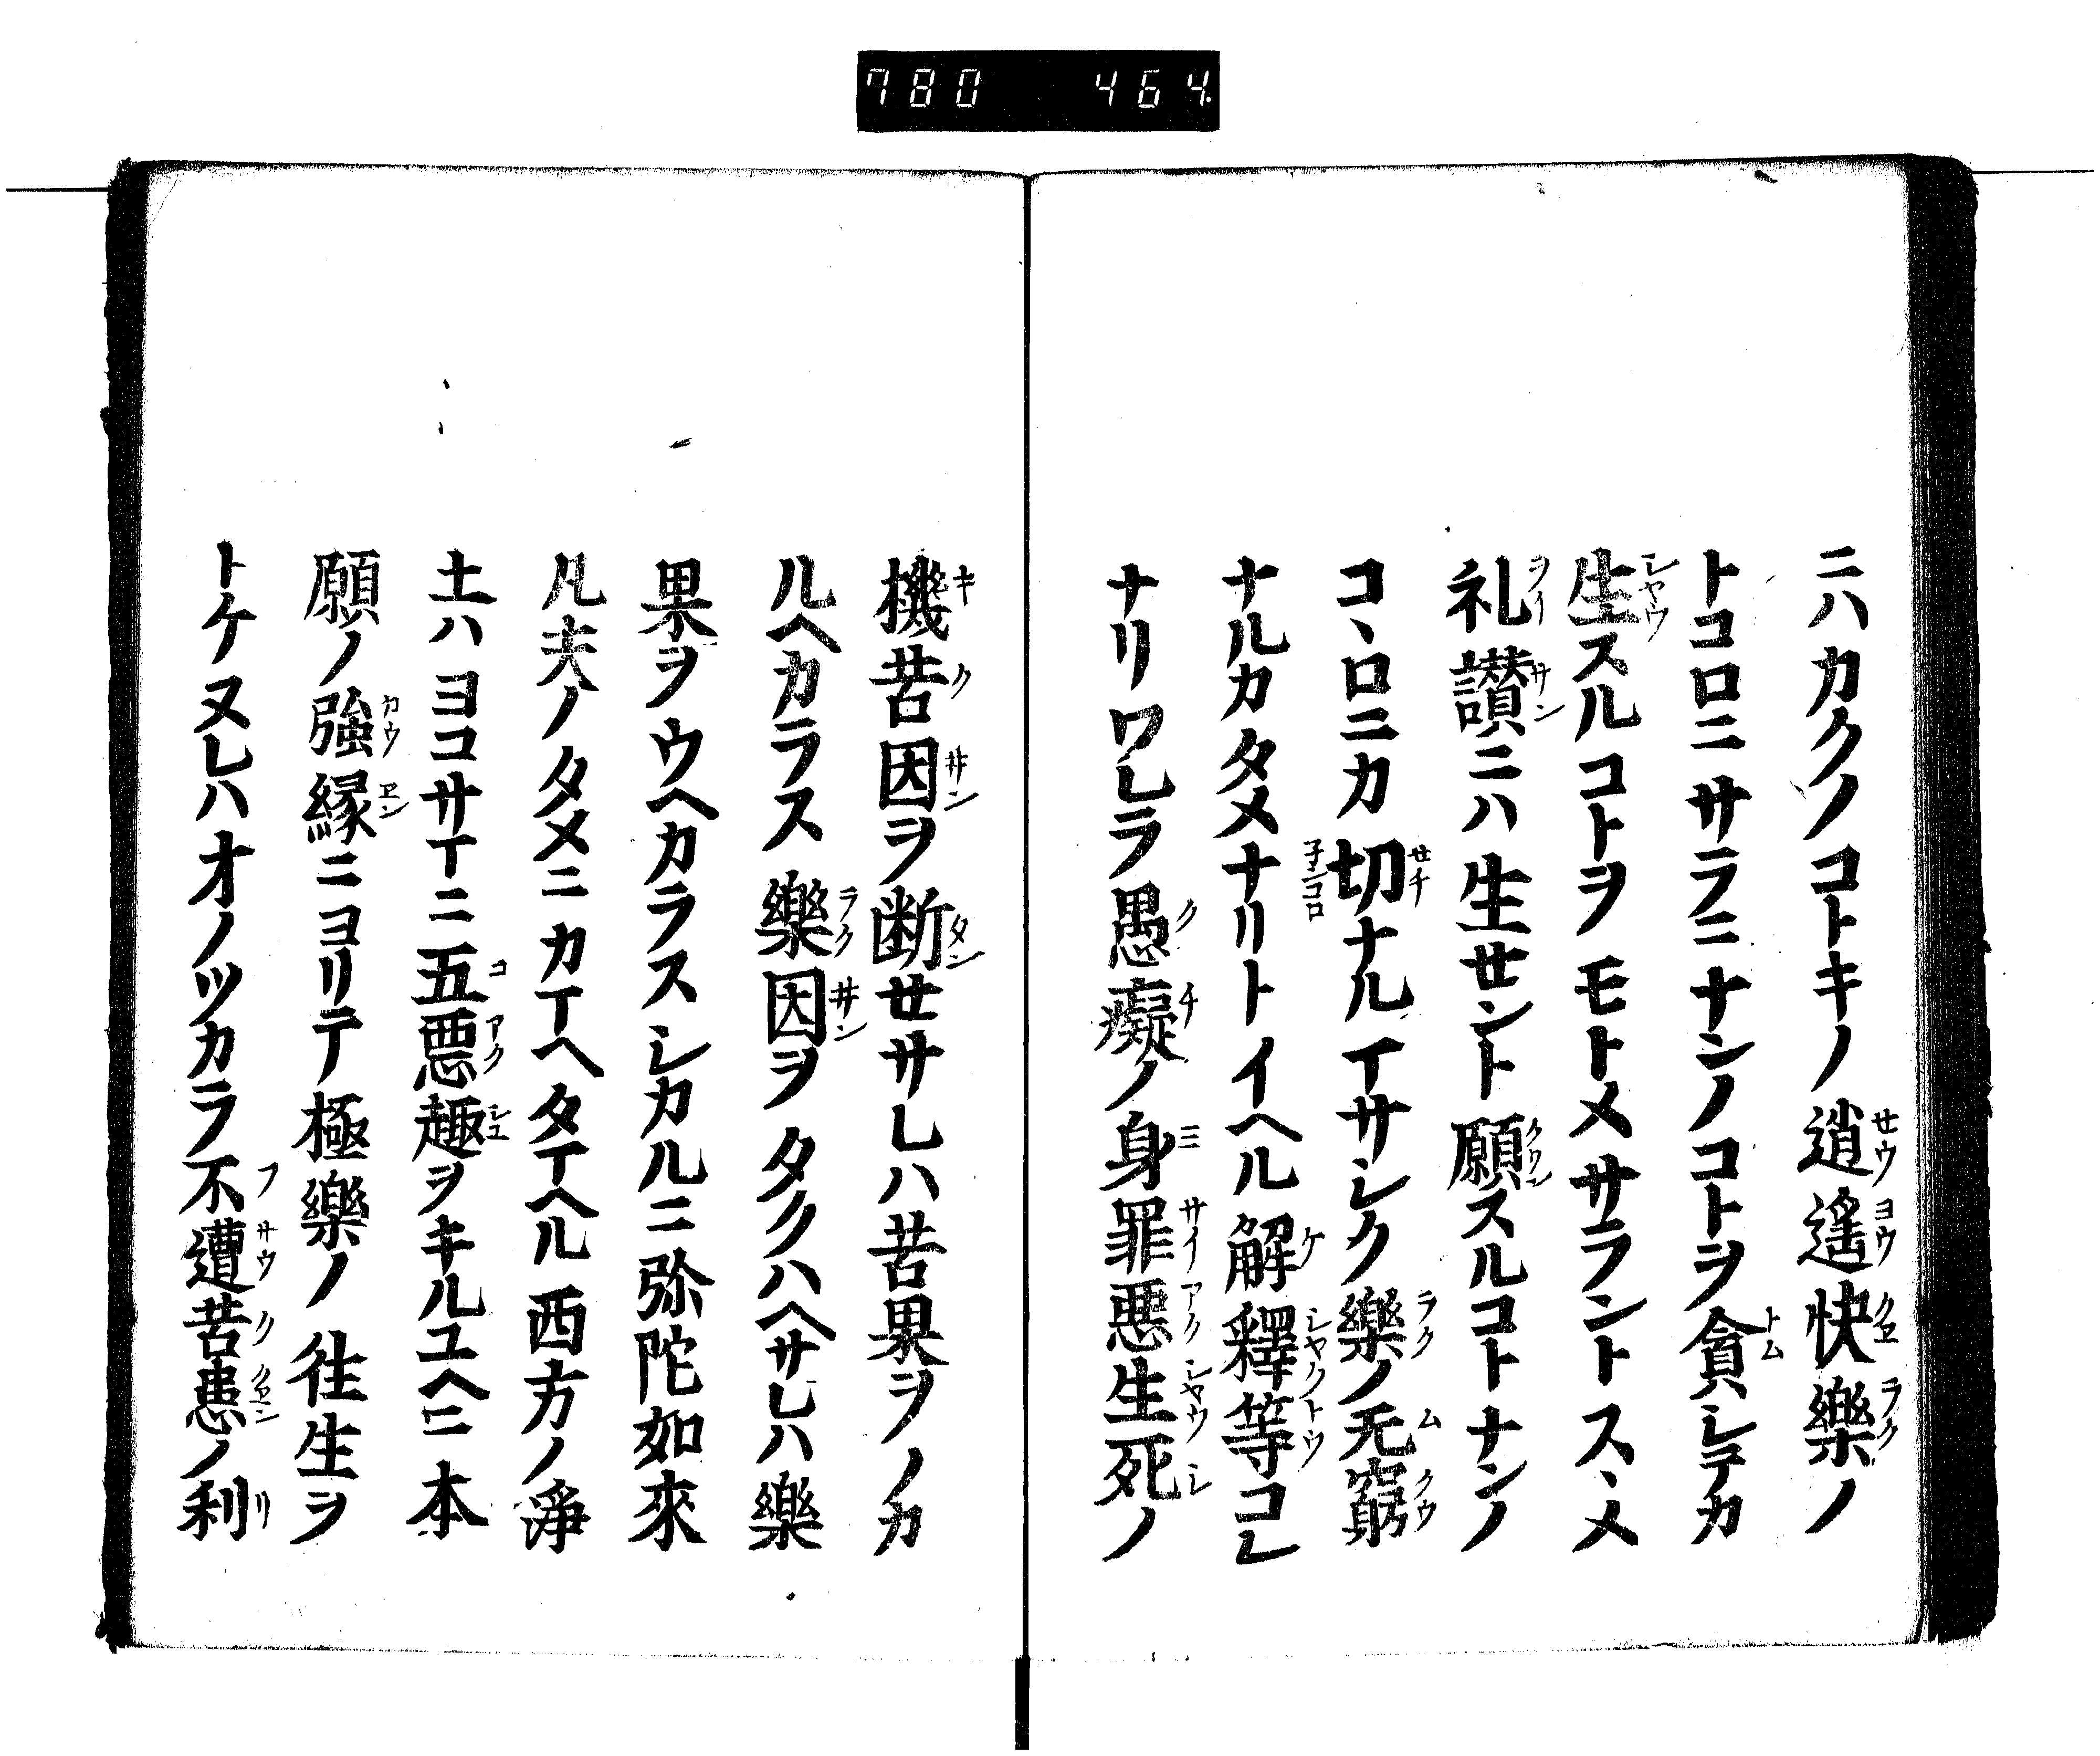 780 464
ニハカクノコトキノ逍遙快樂ノ
トコロニサラニナンノコトヲ貪シテカ
生スルコトヲモトメサラントスヽメ
礼讃ニハ生せント願スルコトナンノ
コヽロニカ切ナルイサシク樂ノ无窮
ナルカタメナリトイヘル解釋等コレ
ナリワレラ愚癡ノ身罪惡生死ノ
機苦因ヲ断せサレハ苦果ヲノカ
ルヘカラス樂因ヲタクハヘサレハ樂
果ヲウヘカラスシカルニ弥陀如來
凡夫ノタメニカマヘタマヘル西方ノ淨
土ハヨコサマニ五悪趣ヲキルユヘニ本
願ノ強縁ニヨリテ極樂ノ往生ヲ
トケヌレハオノツカラ不遭苦患ノ利